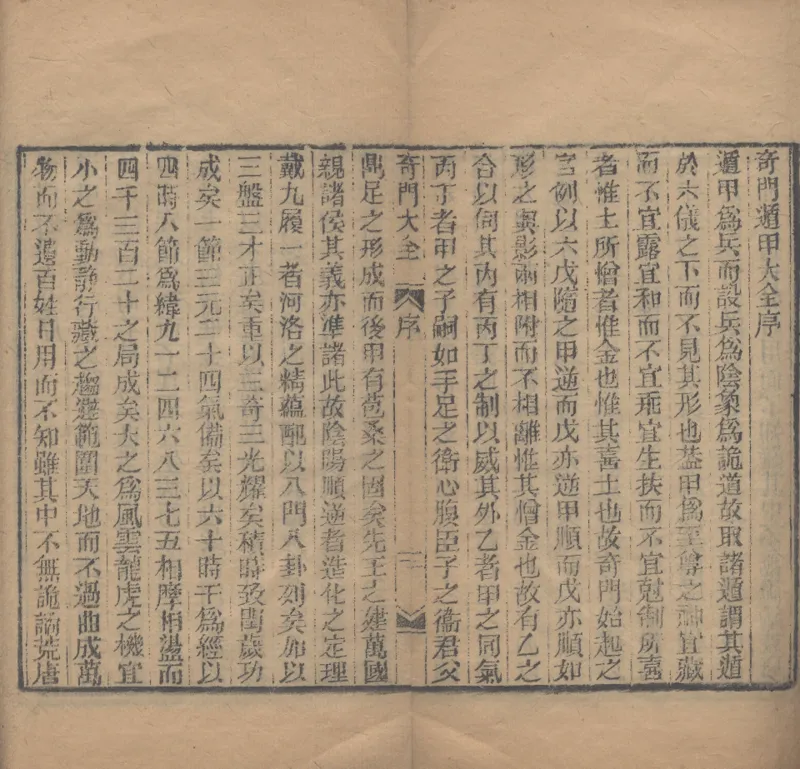 奇門遁甲大全序
遁甲爲兵而設兵爲陰象爲詭道故取諸遁謂其遁
於六儀之下而不見其形也葢甲爲至尊之神宜藏
而不宜露宜和而不宜乖宜生扶而不宜尅制所喜
者惟土所憎者惟金也惟其喜土也故奇門始起之
宮例以六戊隨之甲逆而戊亦逆甲順而戊亦順如
形之與影兩相附而不相離惟其憎金也故有乙之
合以伺其內有丙丁之制以威其外乙者甲之同氣
丙丁者甲之子嗣如手足之衛心腹臣子之衞君父
奇門大全 序 一
鼎足之形成而後甲有苞桑之固矣先王之建萬國
親諸侯其義亦準諸此故陰陽順逆者造化之定理
戴九履一者河洛之精蘊配以八門八卦列矣加以
三盤三才正矣重以三奇三光耀矣積時致閏歲功
成矣一節三元二十四氣備矣以六十時干爲經以
四時八節爲緯九一二四六八三七五相摩相盪而
四千三百二十之局成矣大之爲風雲龍虎之機宜
小之爲動靜行藏之趨避範圍天地而不過曲成萬
物而不遺百姓日用而不知雖其中不無詭譎荒唐